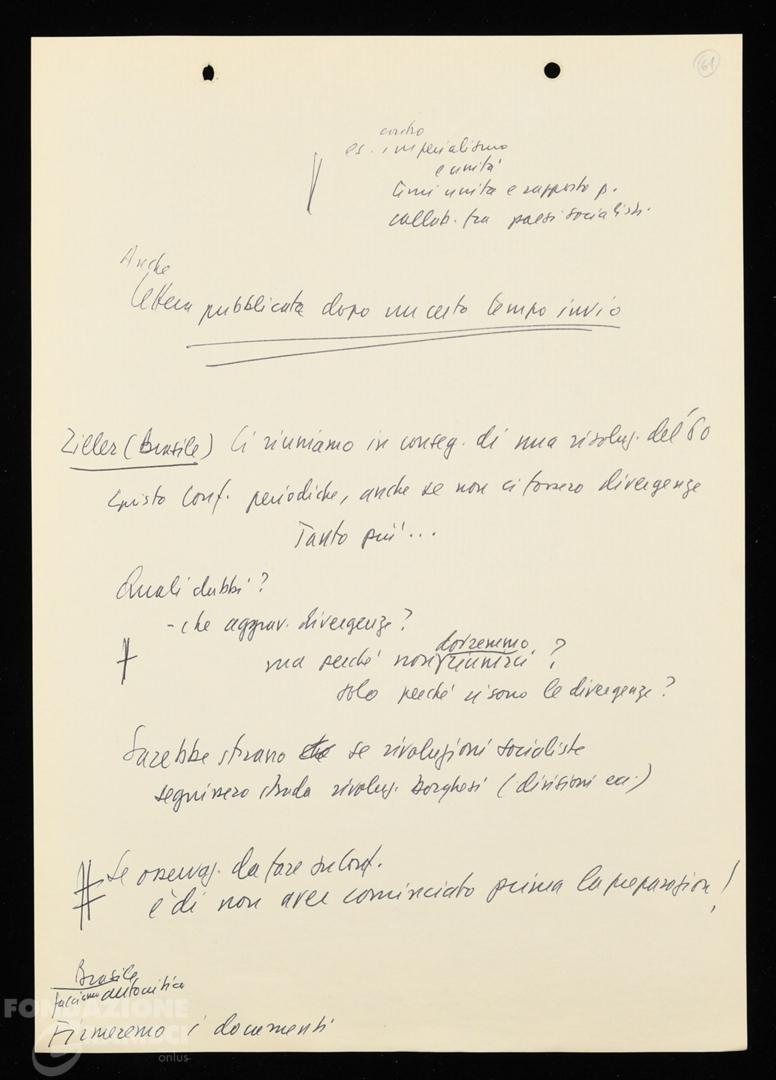 61
contro
es. imperialismo
e unità
unità e rapporto p.
collab. tra paesi socialisti.
Anche
lettera pubblicata dopo un certo tempo invio
Ziller (Brasile) Ci riuniamo in conseg. di una risoluz. del '60
Giusto Conf. periodiche, anche se non ci fossero divergenze
Tanto più...
Quali dubbi?
- che aggrav. divergenze?
dovremmo
ma perché non riunirci?
solo perché ci sono le divergenze?
Sarebbe strano se rivoluzioni socialiste
seguissero strada rivoluz. borghesi (divisioni ecc.)
Se osservaz. da fare su Conf.
è di non aver cominciato prima la preparazion!
Brasile
facciamo autocritica
Firmeremo i documenti
FONDAZIONE
GRAMSCI
onlus